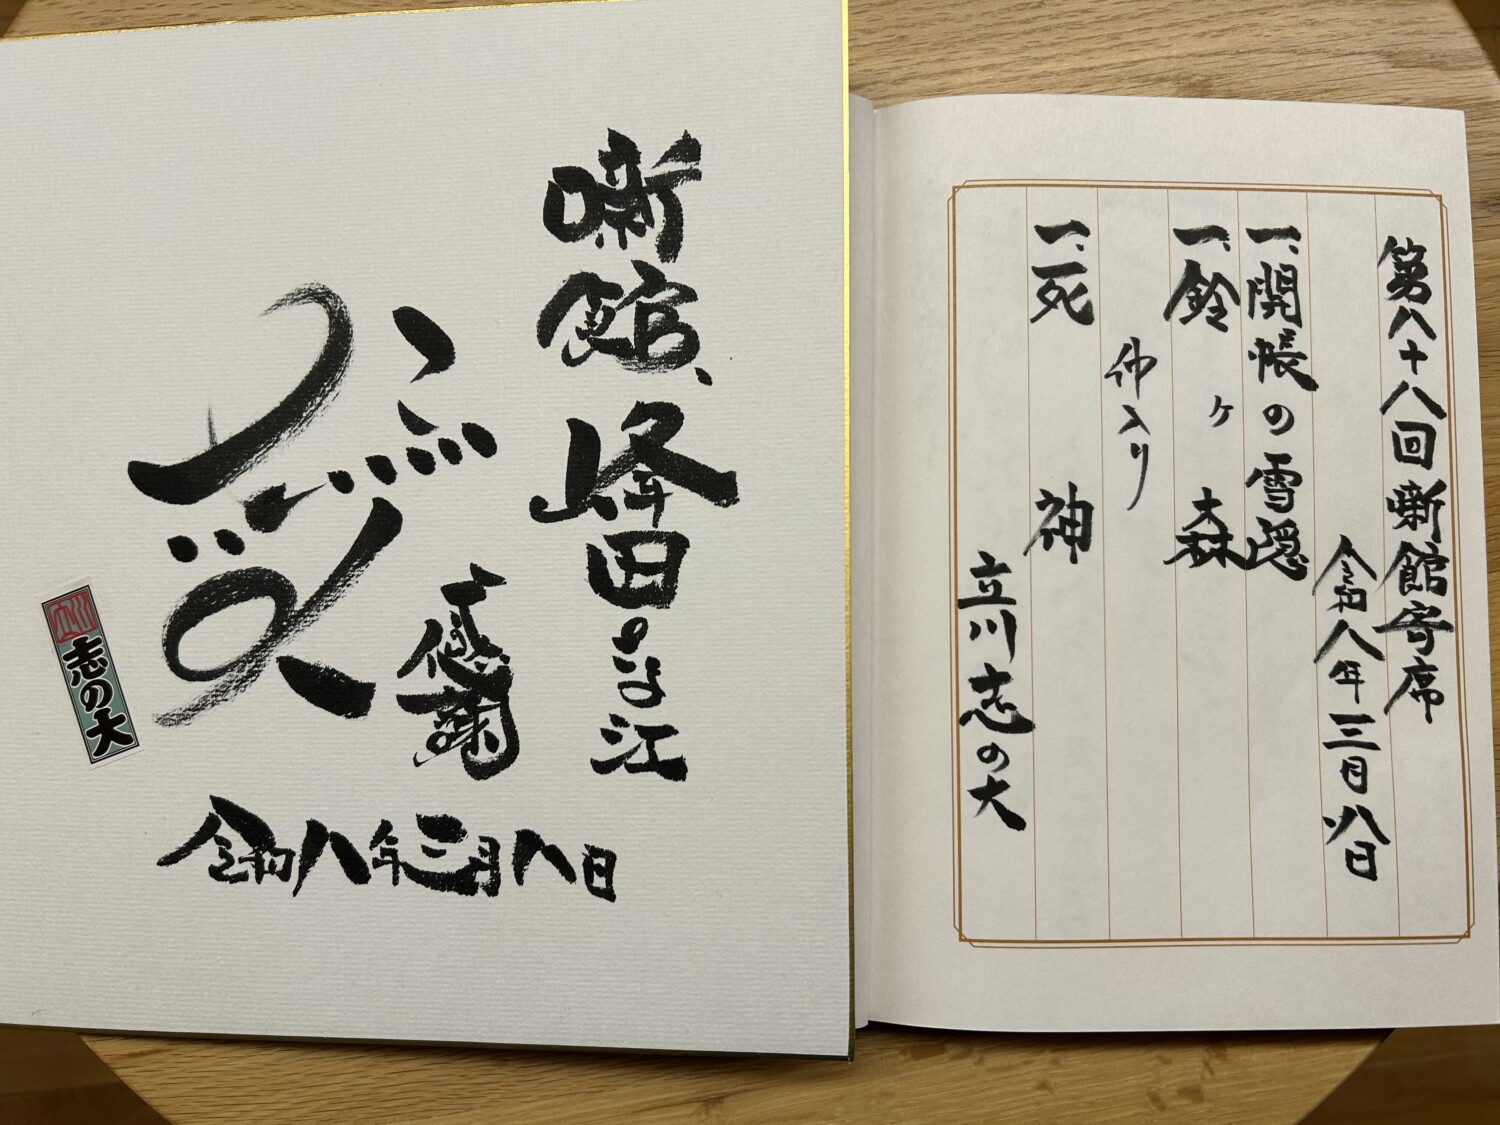 噺館、
峰田さま江
感謝
令和八年三月八日
立川
志の大
第八十八回噺館寄席
令和八年三月八日
一、開帳の雪隠
一、鈴ヶ森
仲入り
一、死神
立川志の大